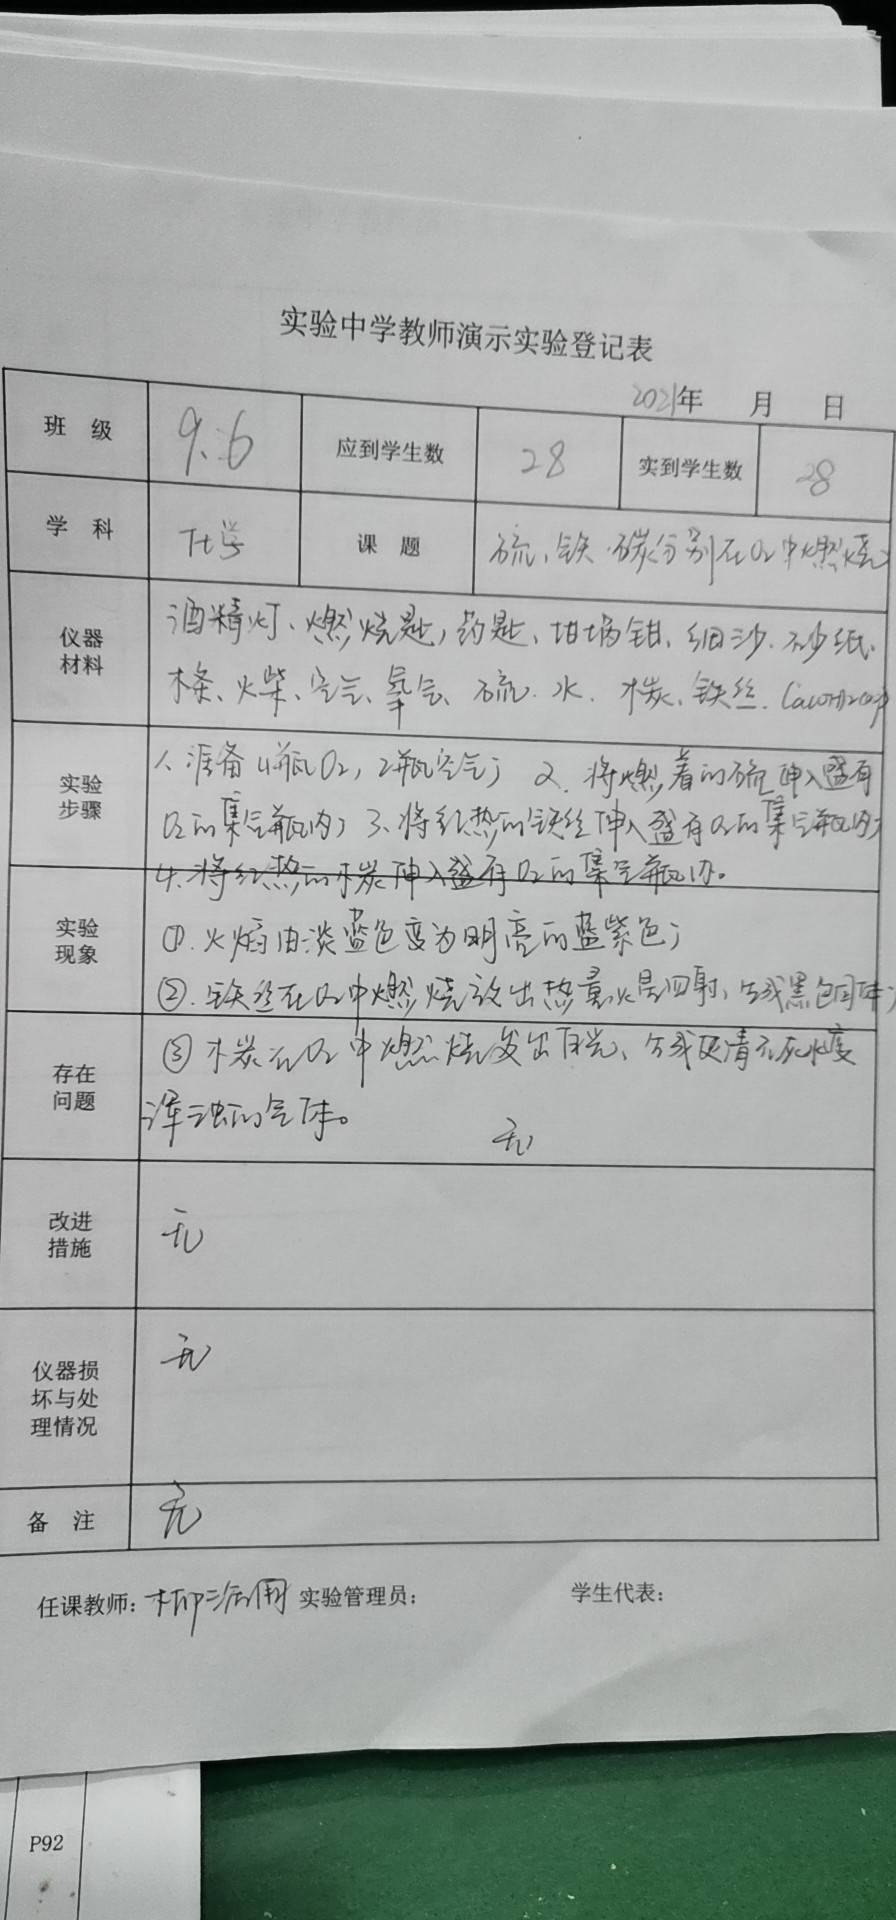 实验中学教师演示实验登记表
2021年 月 日
班 级 9.6 应到学生数 28 实到学生数 28
学 科 化学 课 题 硫、铁、碳分别在O2中燃烧
仪器材料 酒精灯、燃烧匙,药匙、坩埚钳、细沙、砂纸、
木条、火柴、空气、氧气、硫、水、木炭、铁丝、Ca(OH)2
实验步骤 1、准备4瓶O2,2瓶空气; 2、将燃着的硫伸入盛有
O2的集气瓶内; 3、将红热的铁丝伸入盛有O2的集气瓶内;
4、将红热的木炭伸入盛有O2的集气瓶内。
实验现象 ①.火焰由淡蓝色变为明亮的蓝紫色;
②.铁丝在O2中燃烧放出热量火星四射、生成黑色固体;
③木炭在O2中燃烧发出白光、生成使澄清石灰水变
存在问题 浑浊的气体。
无
改进措施 无
仪器损坏与处理情况 无
备 注 无
任课教师: 实验管理员: 学生代表:
P92